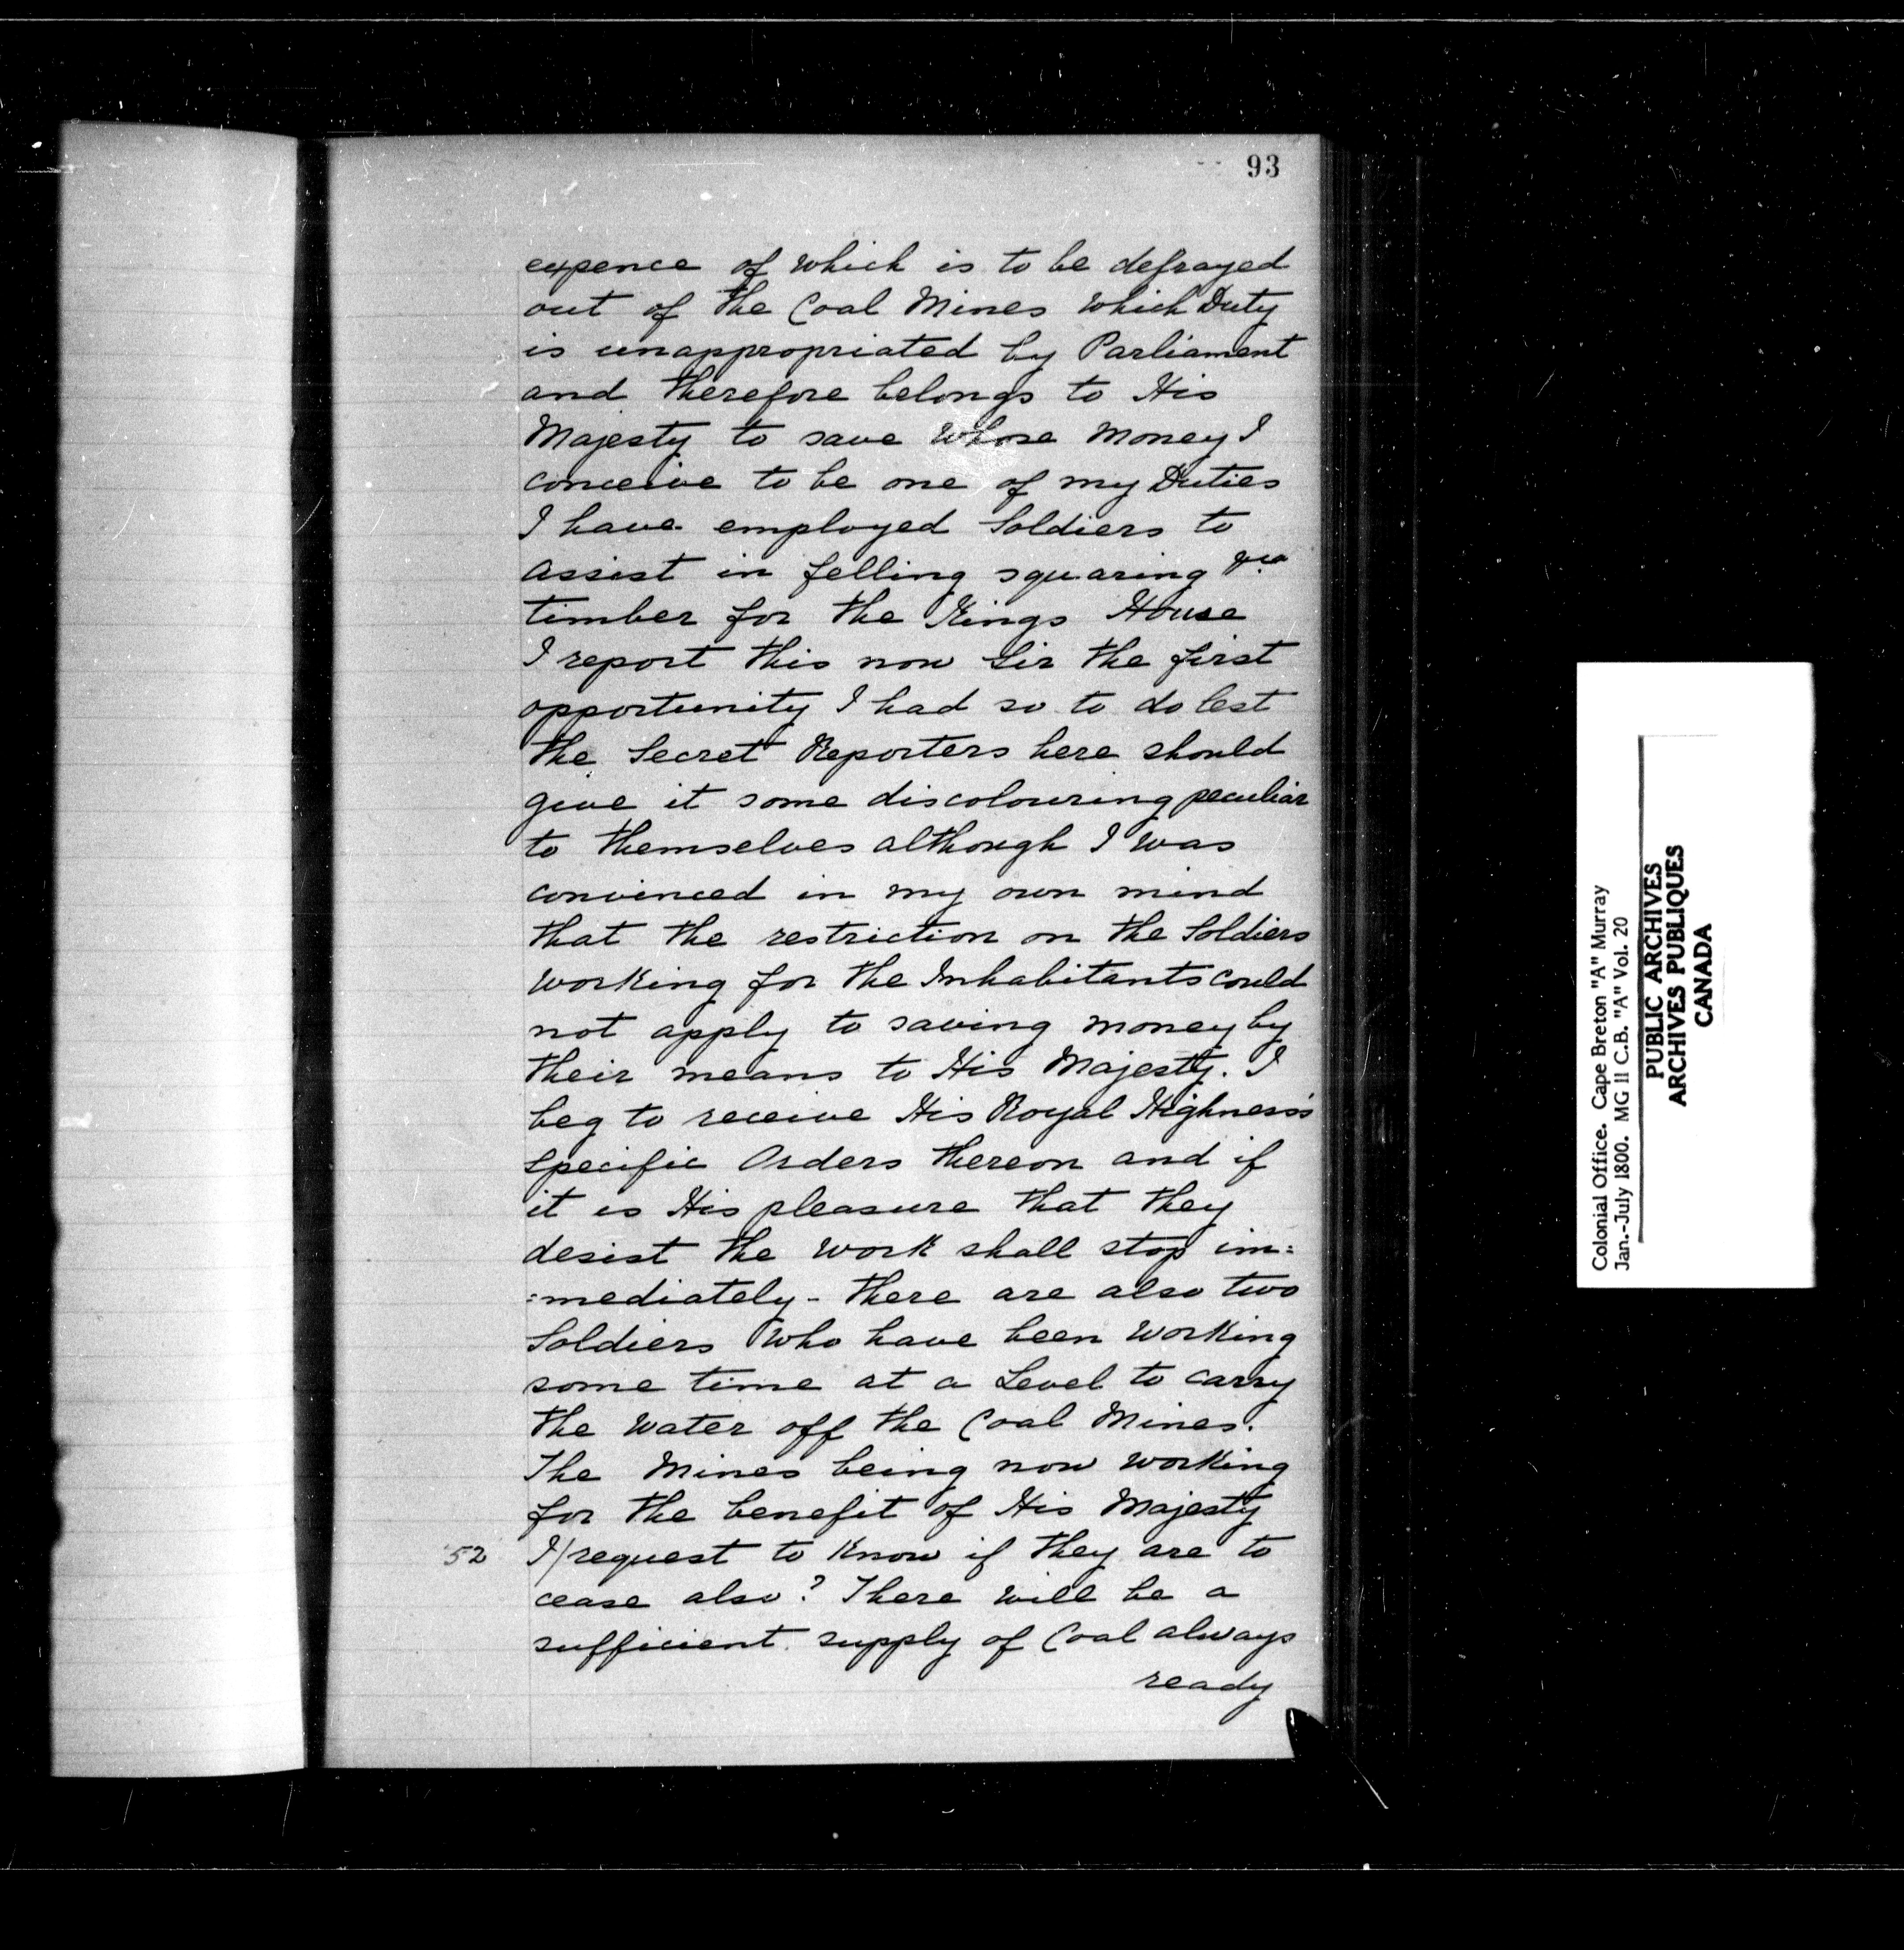 93
expence of which is to be defrayed
out of the Coal Mines which Duty
is unappropriated by Parliament
and therefore belongs to His
Majesty to save whose money I
conceive to be one of my Duties
I have employed Soldiers to
assist in felling squaring &ca
timber for the Kings House
I report this now Sir the first
opportunity I had so to do lest
the Secret Reporters here should
give it some discolouring peculiar
to themselves although I was
convinced in my own mind
that the restriction on the Soldiers
working for the Inhabitants could
not apply to saving money by
their means to His Majesty. I
beg to receive His Royal Highness's
specific Orders thereon and if
it is His pleasure that they
desist the work shall stop im=
=mediately - there are also two
Soldiers who have been working
some time at a Level to carry
the water off the Coal Mines.
The Mines being now working
for the benefit of His Majesty
52 I/request to know if they are to
cease also? There will be a
sufficient supply of Coal always
ready
Colonial Office. Cape Breton "A" Murray
Jan.-July 1800. MG 11 C.B. "A" Vol. 20
PUBLIC ARCHIVES
ARCHIVES PUBLIQUES
CANADA